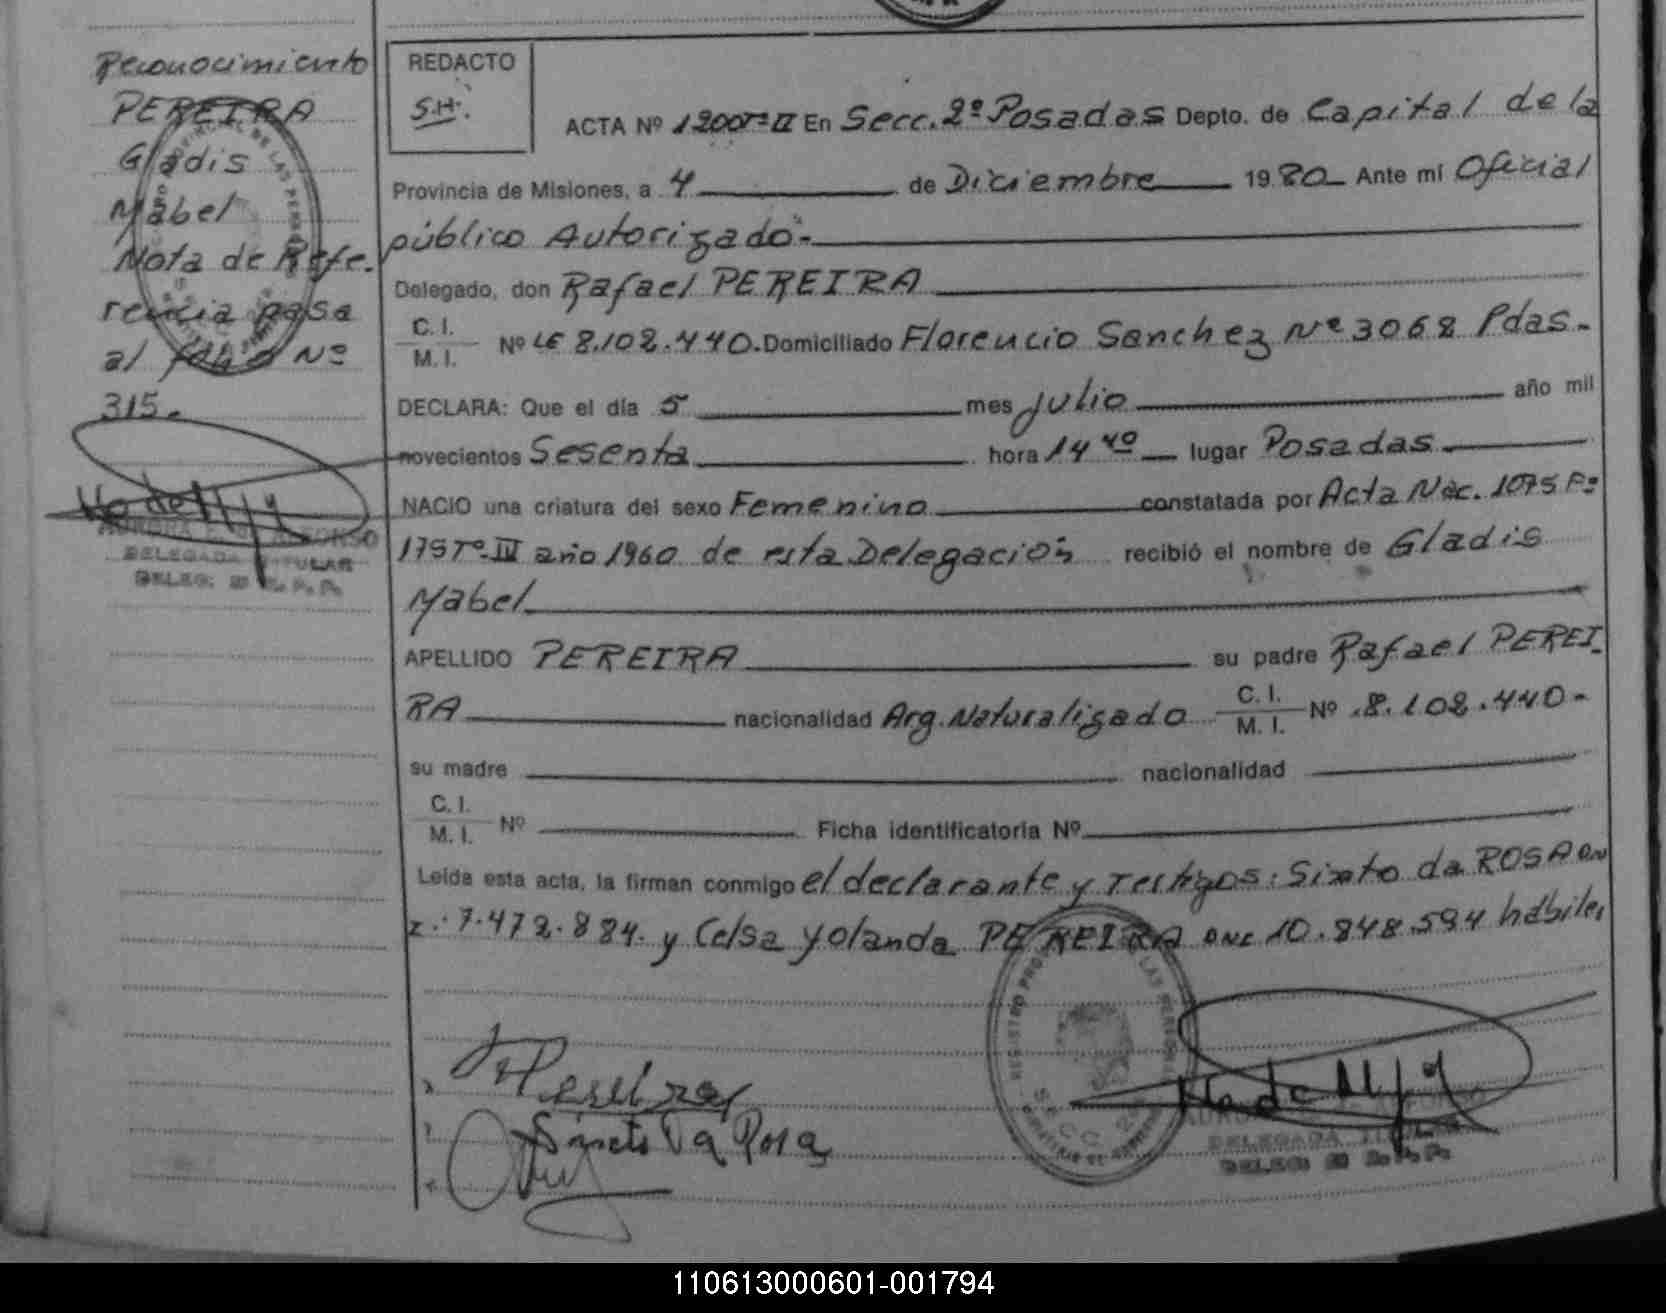 Reconocimiento
PEREIRA
Gladis
Mabel
Nota de Refe-
rencia pasa
al folio Nº
315.
DELEGADA TITULAR
REDACTO
S.H.
ACTA Nº 1200Tº II En Secc. 2º Posadas Depto. de Capital de la
Provincia de Misiones, a 4 de Diciembre 1980 Ante mí Oficial
público Autorizado.-
Delegado, don Rafael PEREIRA
C. I.
M. I. Nº LE 8.108.440. Domiciliado Florencio Sanchez Nº 3068 Pdas.
DECLARA: Que el día 5 mes julio año mil
novecientos Sesenta hora 14 40 lugar Posadas
NACIO una criatura del sexo Femenino constatada por Acta Nac. 1075 Fº
175 Tº III año 1960 de esta Delegación recibió el nombre de Gladis
Mabel
APELLIDO PEREIRA su padre Rafael PEREI-
RA nacionalidad Arg. Naturalizado C. I. M. I. Nº 8.108.440-
su madre nacionalidad
C. I.
M. I. Nº Ficha identificatoria Nº
Leída esta acta, la firman conmigo el declarante y testigos: Sixto da ROSA DN
I.: 7.472.884. y Celsa Yolanda PEREIRA DNI 10.848.594 hábiles
Sixto Da Rosa
DELEGADA TITULAR
110613000601-001794